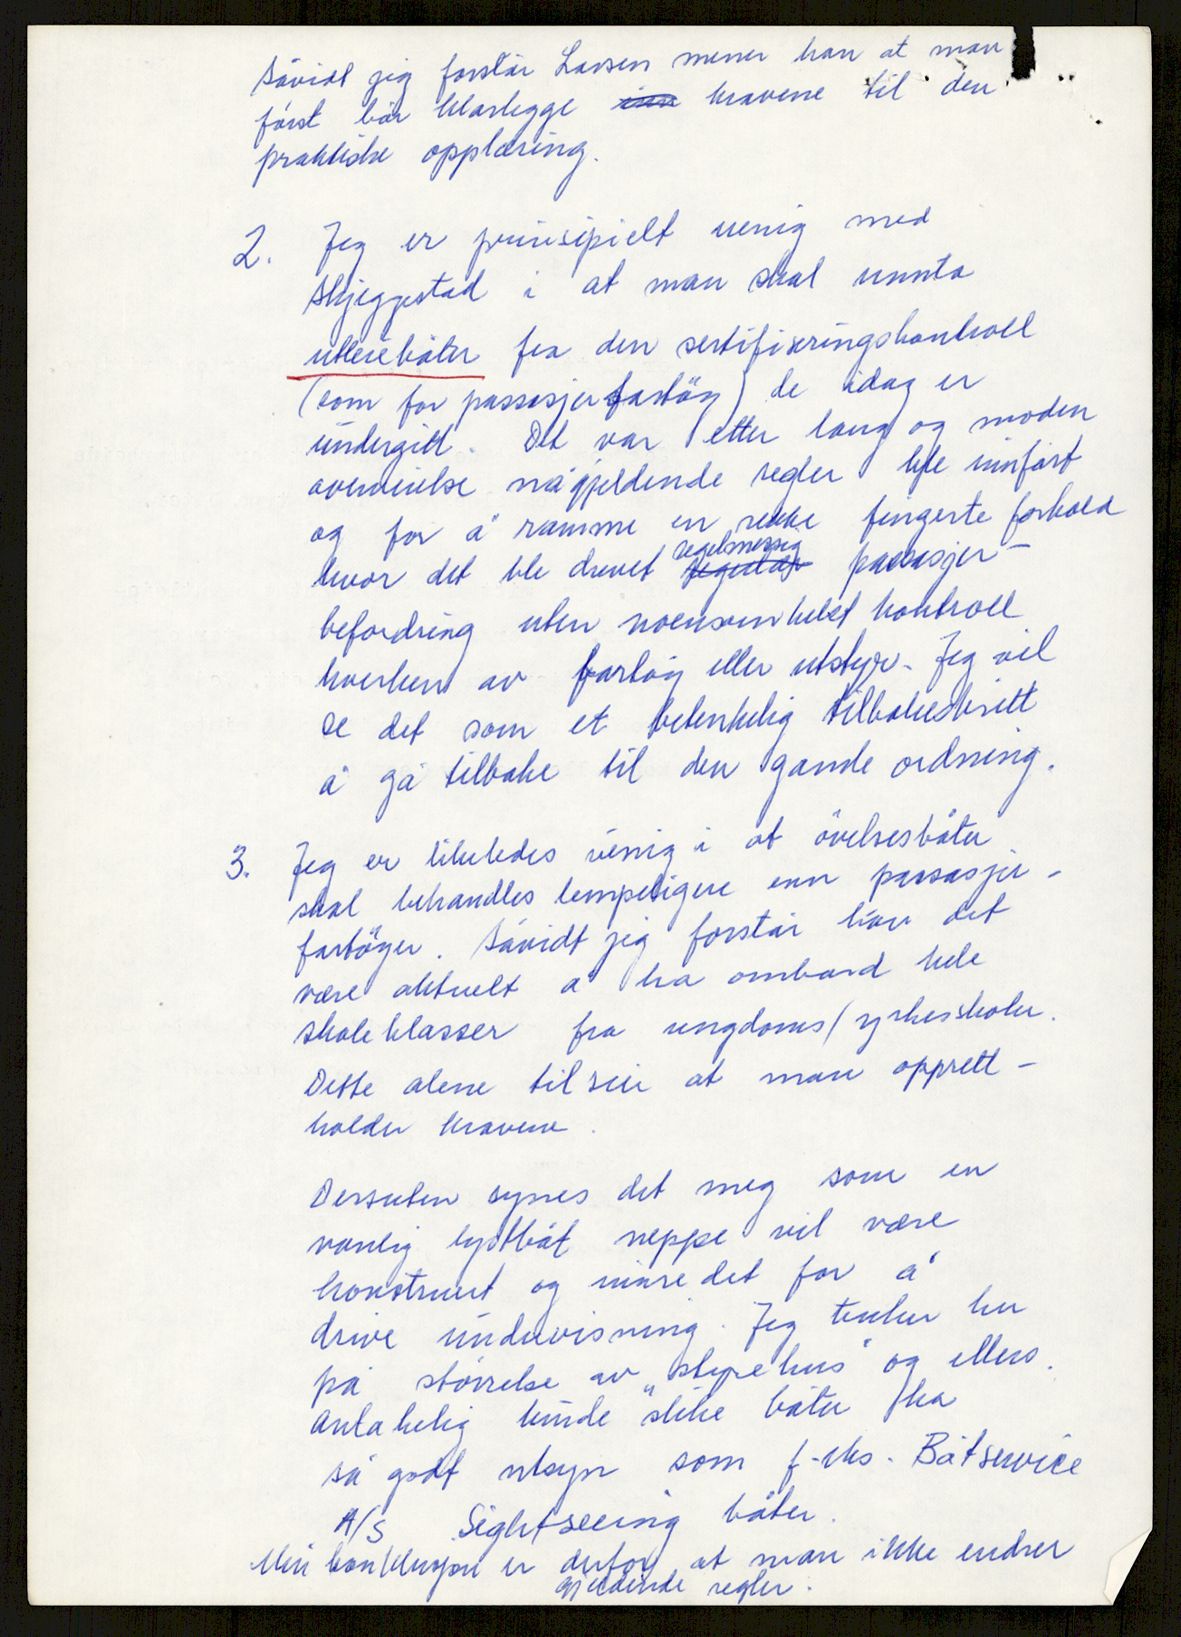 såvidt jeg forstår Larsen mener han at man
først bör klarlegge kravene til den
praktiske opplæring.
2. Jeg er prinsipielt uenig med
Skjeggestad i at man skal unnta
utleiebåter fra den sertifiseringskontroll
(som for passasjerfartöy) de idag er
undergitt. Det var etter lang og moden
overveielse någjeldende regler ble innført
og for å ramme en rekke fingerte forhold
hvor det ble drevet regelmessig passasjer-
befordring uten noensomhelst kontroll
hverken av fartöy eller utstyr. Jeg vil
se det som et betenkelig tilbakeskritt
å gå tilbake til den gamle ordning.
3. Jeg er likeledes uenig i at övelsesbåter
skal behandles lempeligere enn passasjer-
fartöyer. Såvidt jeg forstår kan det
være aktuelt å ha ombord hele
skoleklasser fra ungdoms/yrkesskoler.
Dette alene tilsier at man opprett-
holder kravene.
Dessuten synes det meg som en
vanlig lystbåt neppe vil være
konstruert og innredet for å
drive undervisning. Jeg tenker her
på størrelse av "styrehus" og ellers.
Antakelig kunde slike båter ha
så godt utsyn som f.eks. Båtservice
A/S Sightseeing båter.
Min konklusjon er derfor at man ikke endrer
gjeldende regler.